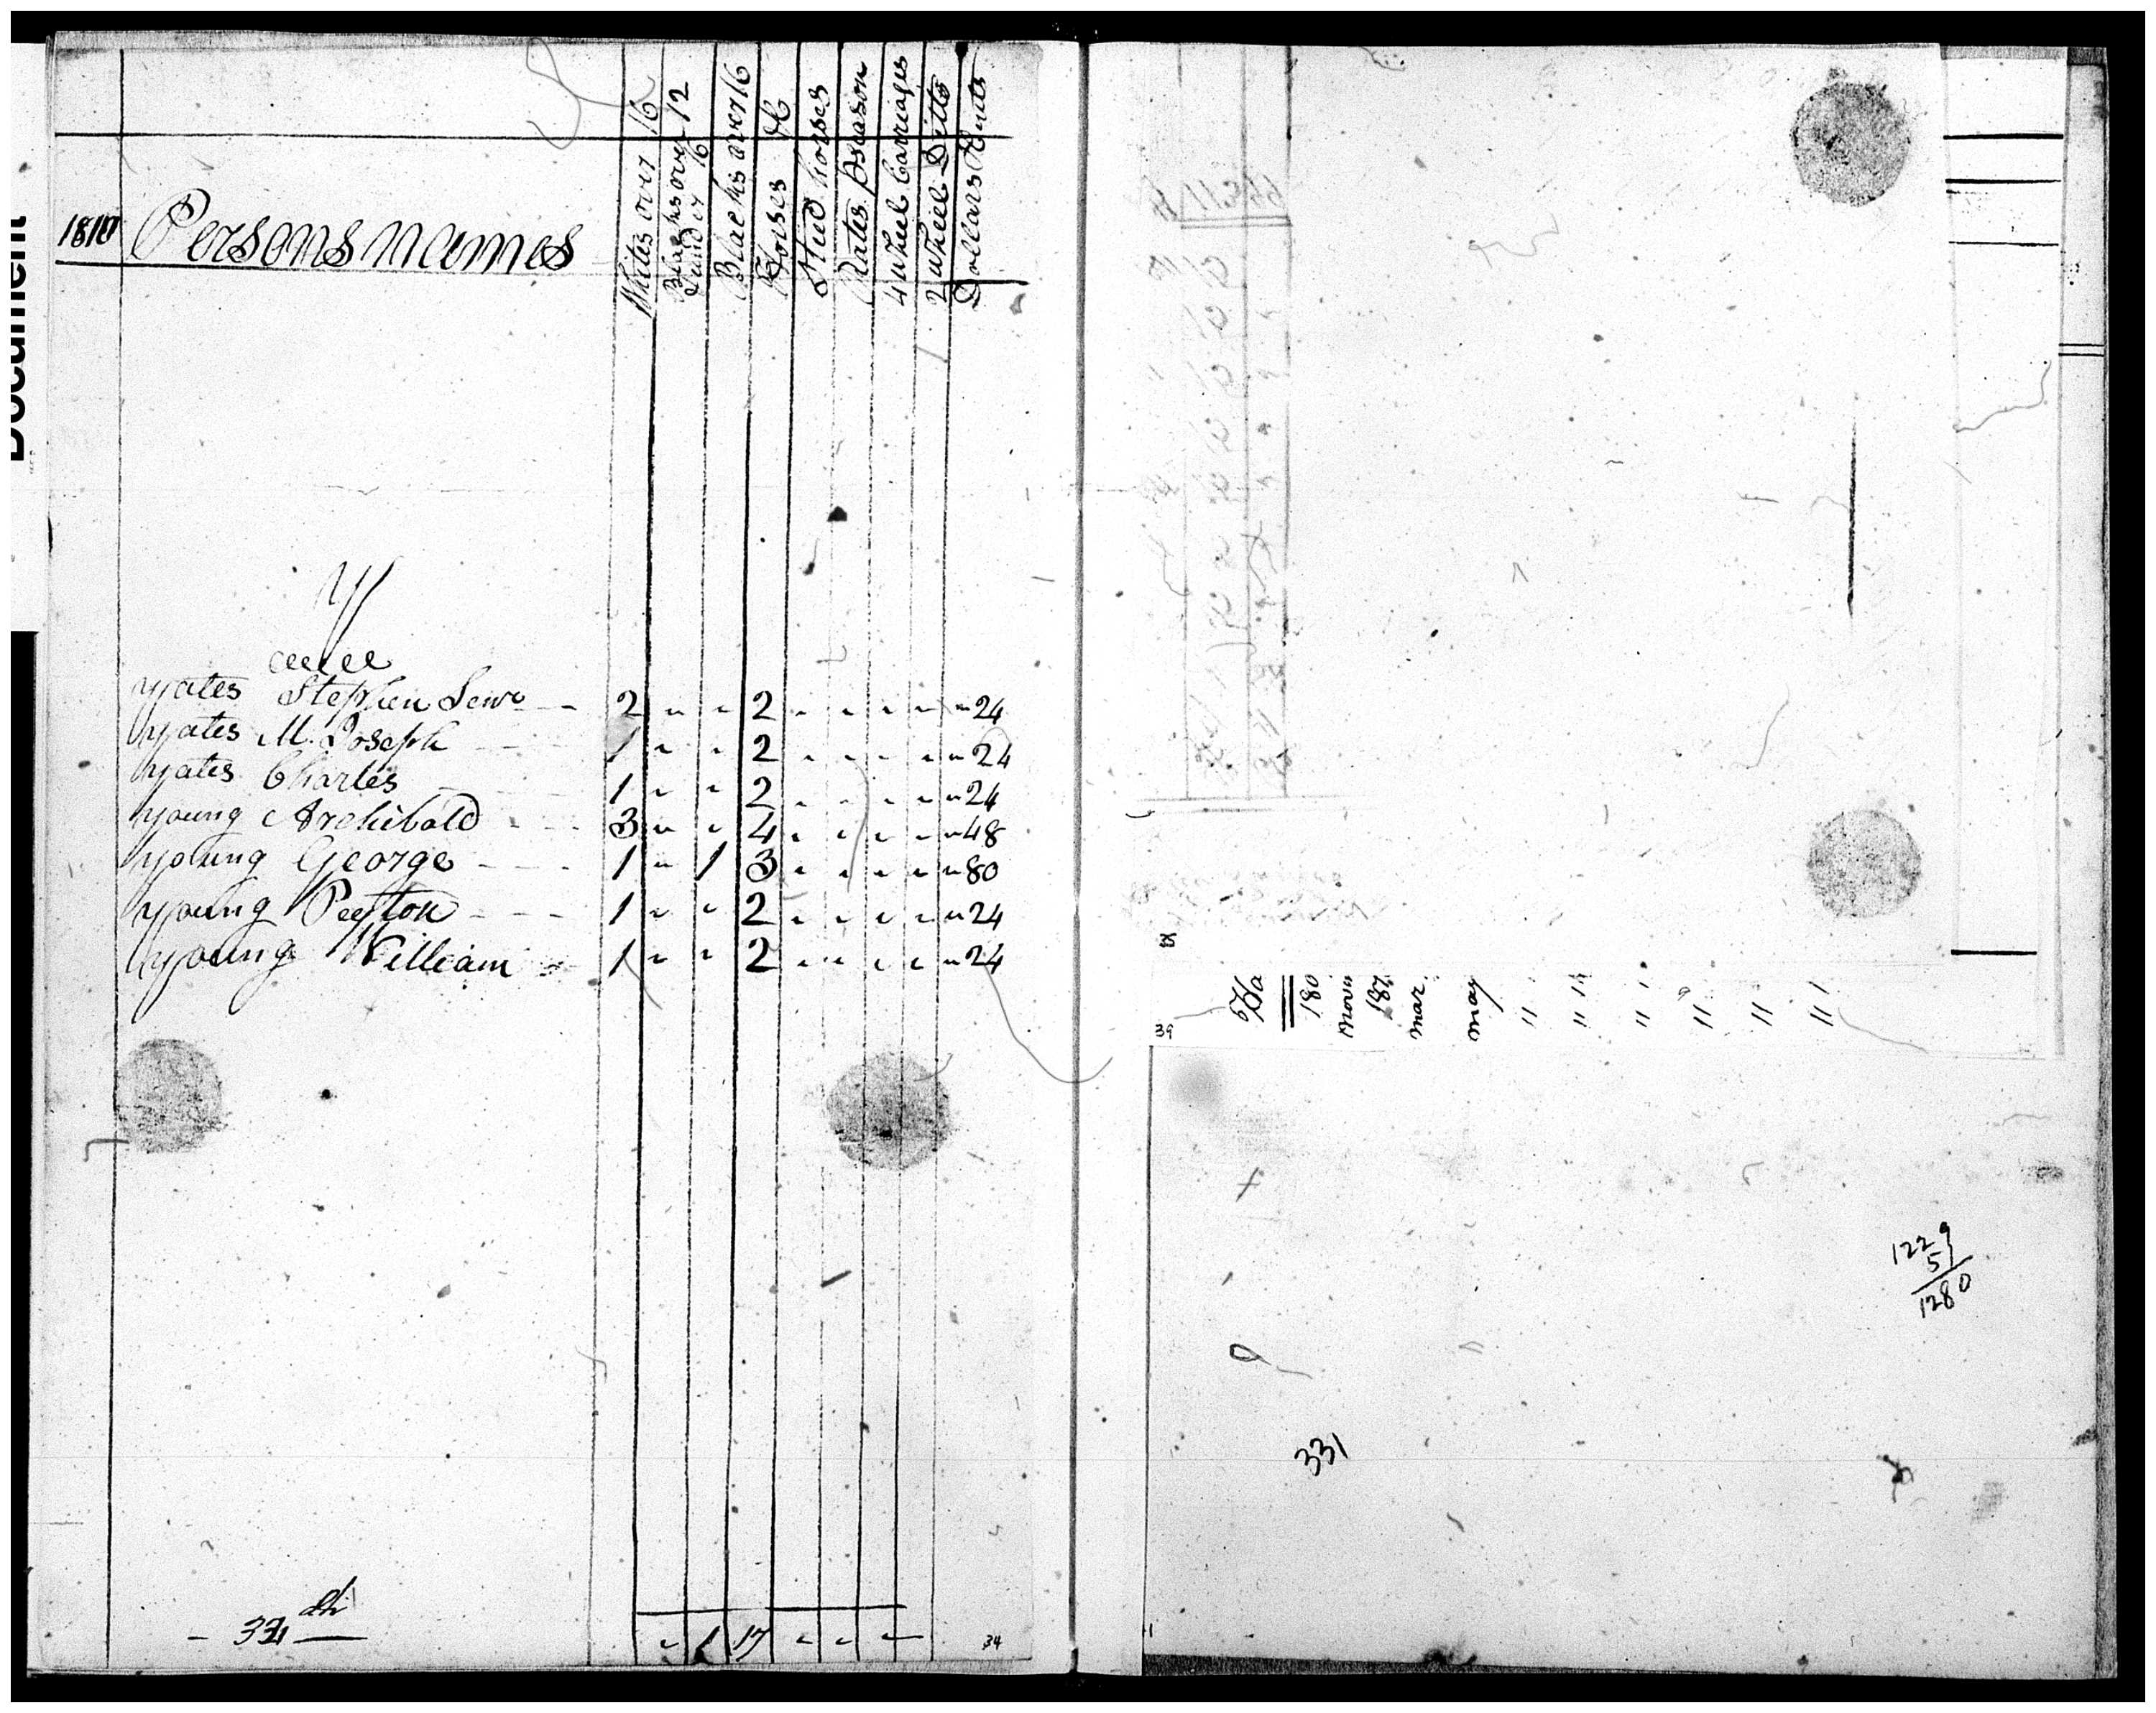 Document
1810 Persons names
Whites over 16
Blackes over 12 & under 16
Blackes over 16
Horses &C
Stud horses
Rates pseason
4 wheel Carriages
2 wheel Ditto
Dollars Cents
Y
Yates Stephen Senr 2 " " 2 " " " " " 24
Yates M. Joseph 1 " " 2 " " " " " 24
Yates Charles 1 " " 2 " " " " " 24
Young Archibald 3 " " 4 " " " " " 48
Young George 1 " 1 3 " " " " " 80
Young Peyton 1 " " 2 " " " " " 24
Young William 1 " " 2 " " " " " 24
" 1 17 " " "
34
35
39
180
187
mar
may
" " " " " "
1229
51
1280
331